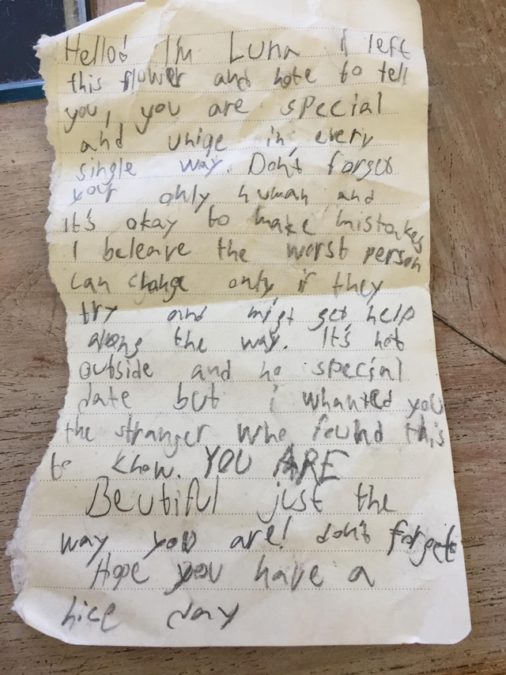 Hello! I'm Luna I left
this flower and note to tell
you, you are special
and uniqe in every
single way. Don't forget
your only human and
It's okay to make mistakes
I beleave the worst person
can change only if they
try and migt get help
along the way. It's hot
outside and no special
date but i whanted you
the stranger who found this
to know. YOU ARE
Beutiful just the
way you are! don't forget
Hope you have a
nice day